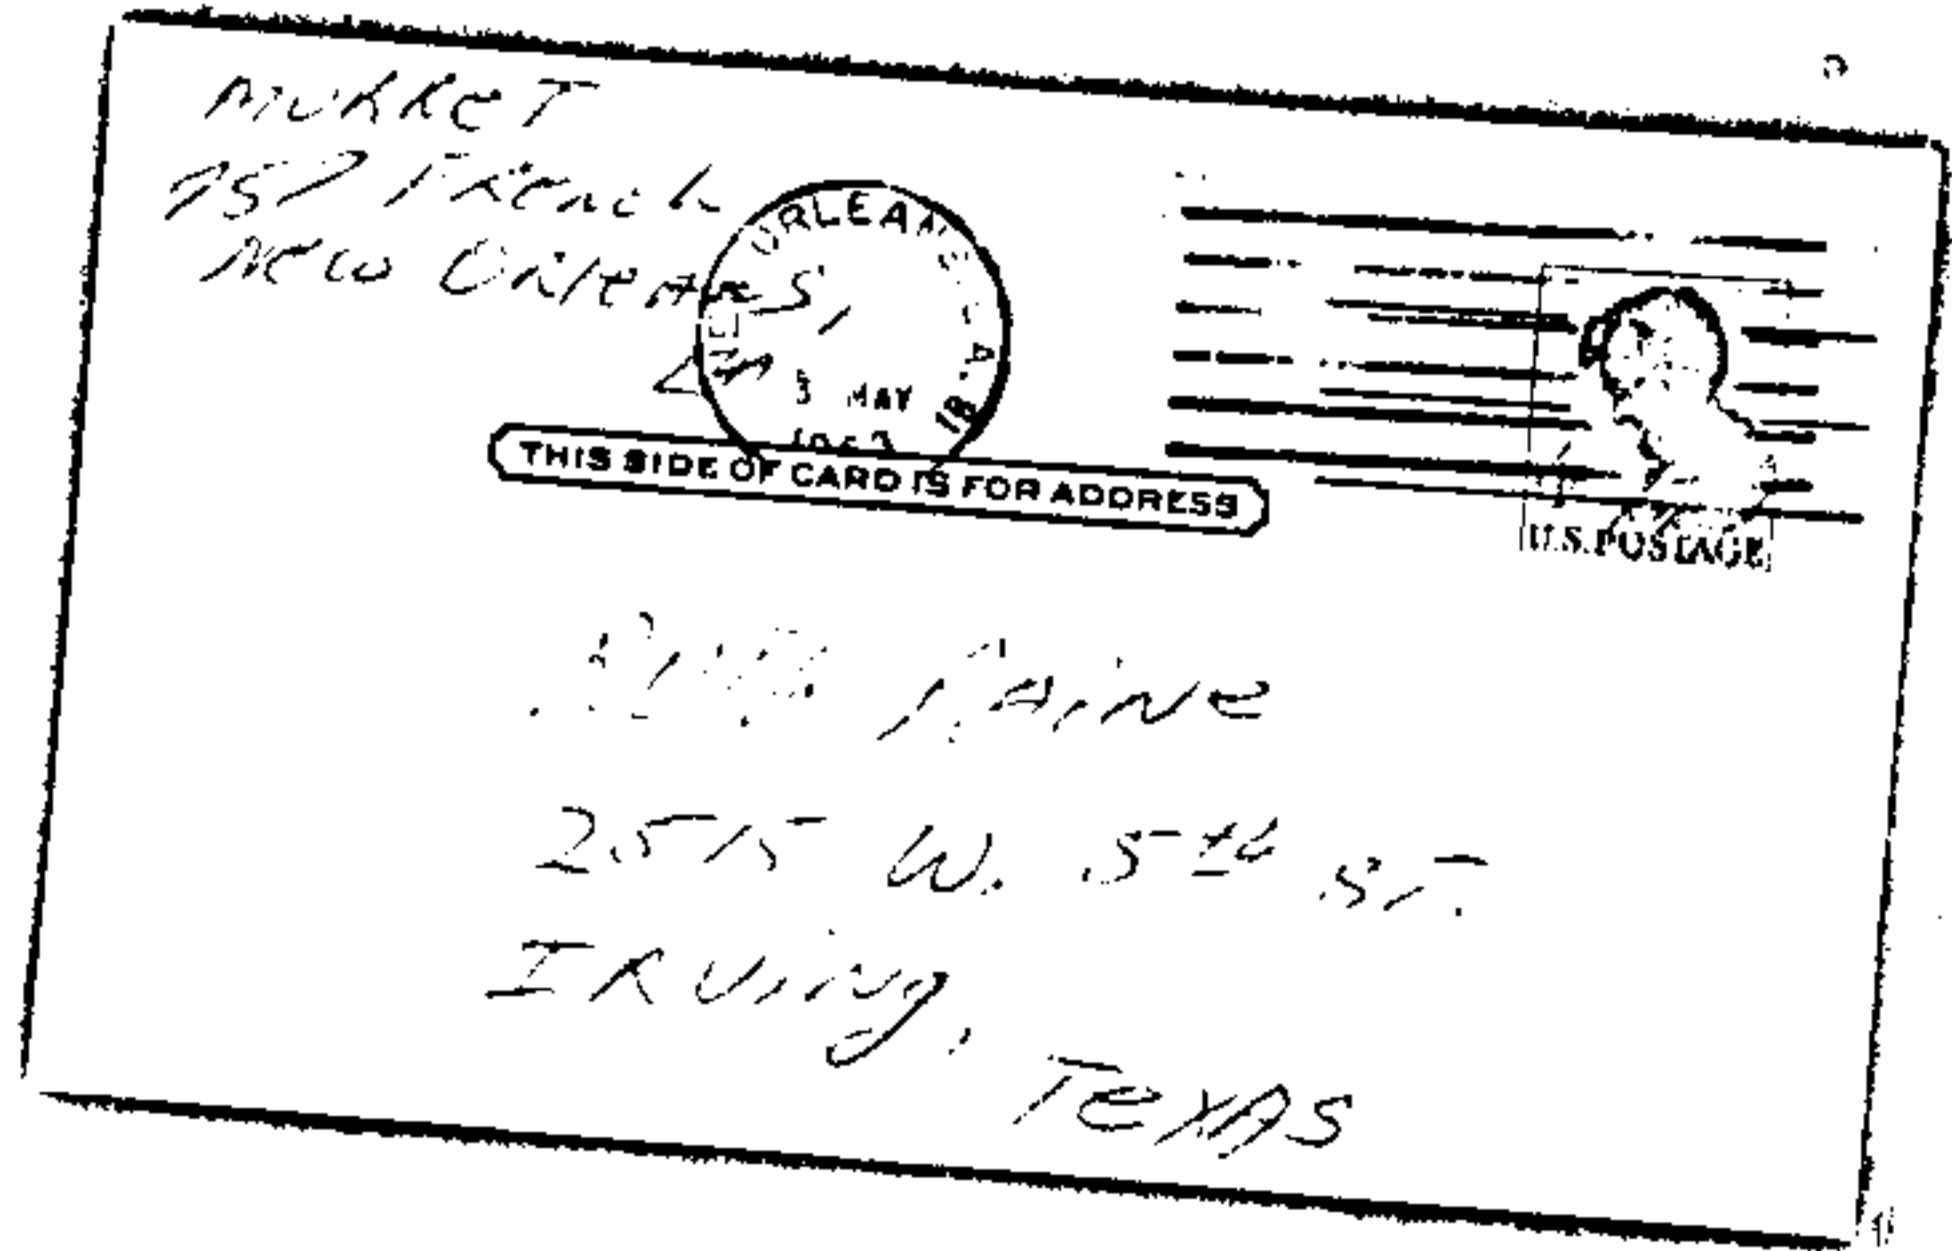 MURRET
757 FRench
New ORleans,
La
NEW ORLEANS, LA. 18
3 MAY
1963
THIS SIDE OF CARD IS FOR ADDRESS
U.S. POSTAGE
Ruth Paine
2515 W. 5th ST.
IRving,
TeXAS